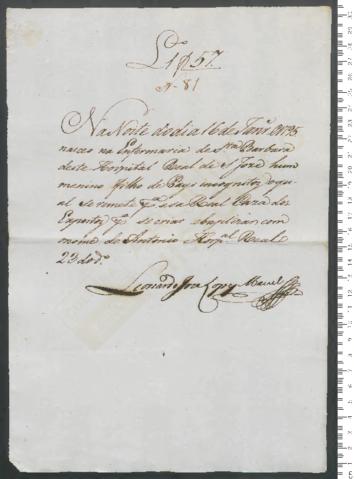 Lº 1 f 57.
Nº 81
Na Noite do dia 16 de Janrº de 1795
nasceo na Enfermaria de Sta Barbara
deste Hospital Real de S. Jozé hum
menino filho de Pays incognitos, o qu-
al se remete pª essa Real Caza dos
Expostos pª se criar e baptizar com
nome de Antonio Hospal Real
23 do dº
Leonardo Joze Lopes Maciel